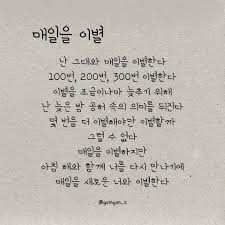 매일을 이별
난 그대와 매일을 이별한다
100번, 200번, 300번 이별한다
이별을 조금이나마 늦추기 위해
난 늦은 밤 공허 속의 의미를 뒤진다
몇 번을 더 이별해야만 이별할까
그럴 수 없다
매일을 이별하지만
아침 해와 함께 너를 다시 만나기에
매일을 새로운 너와 이별한다